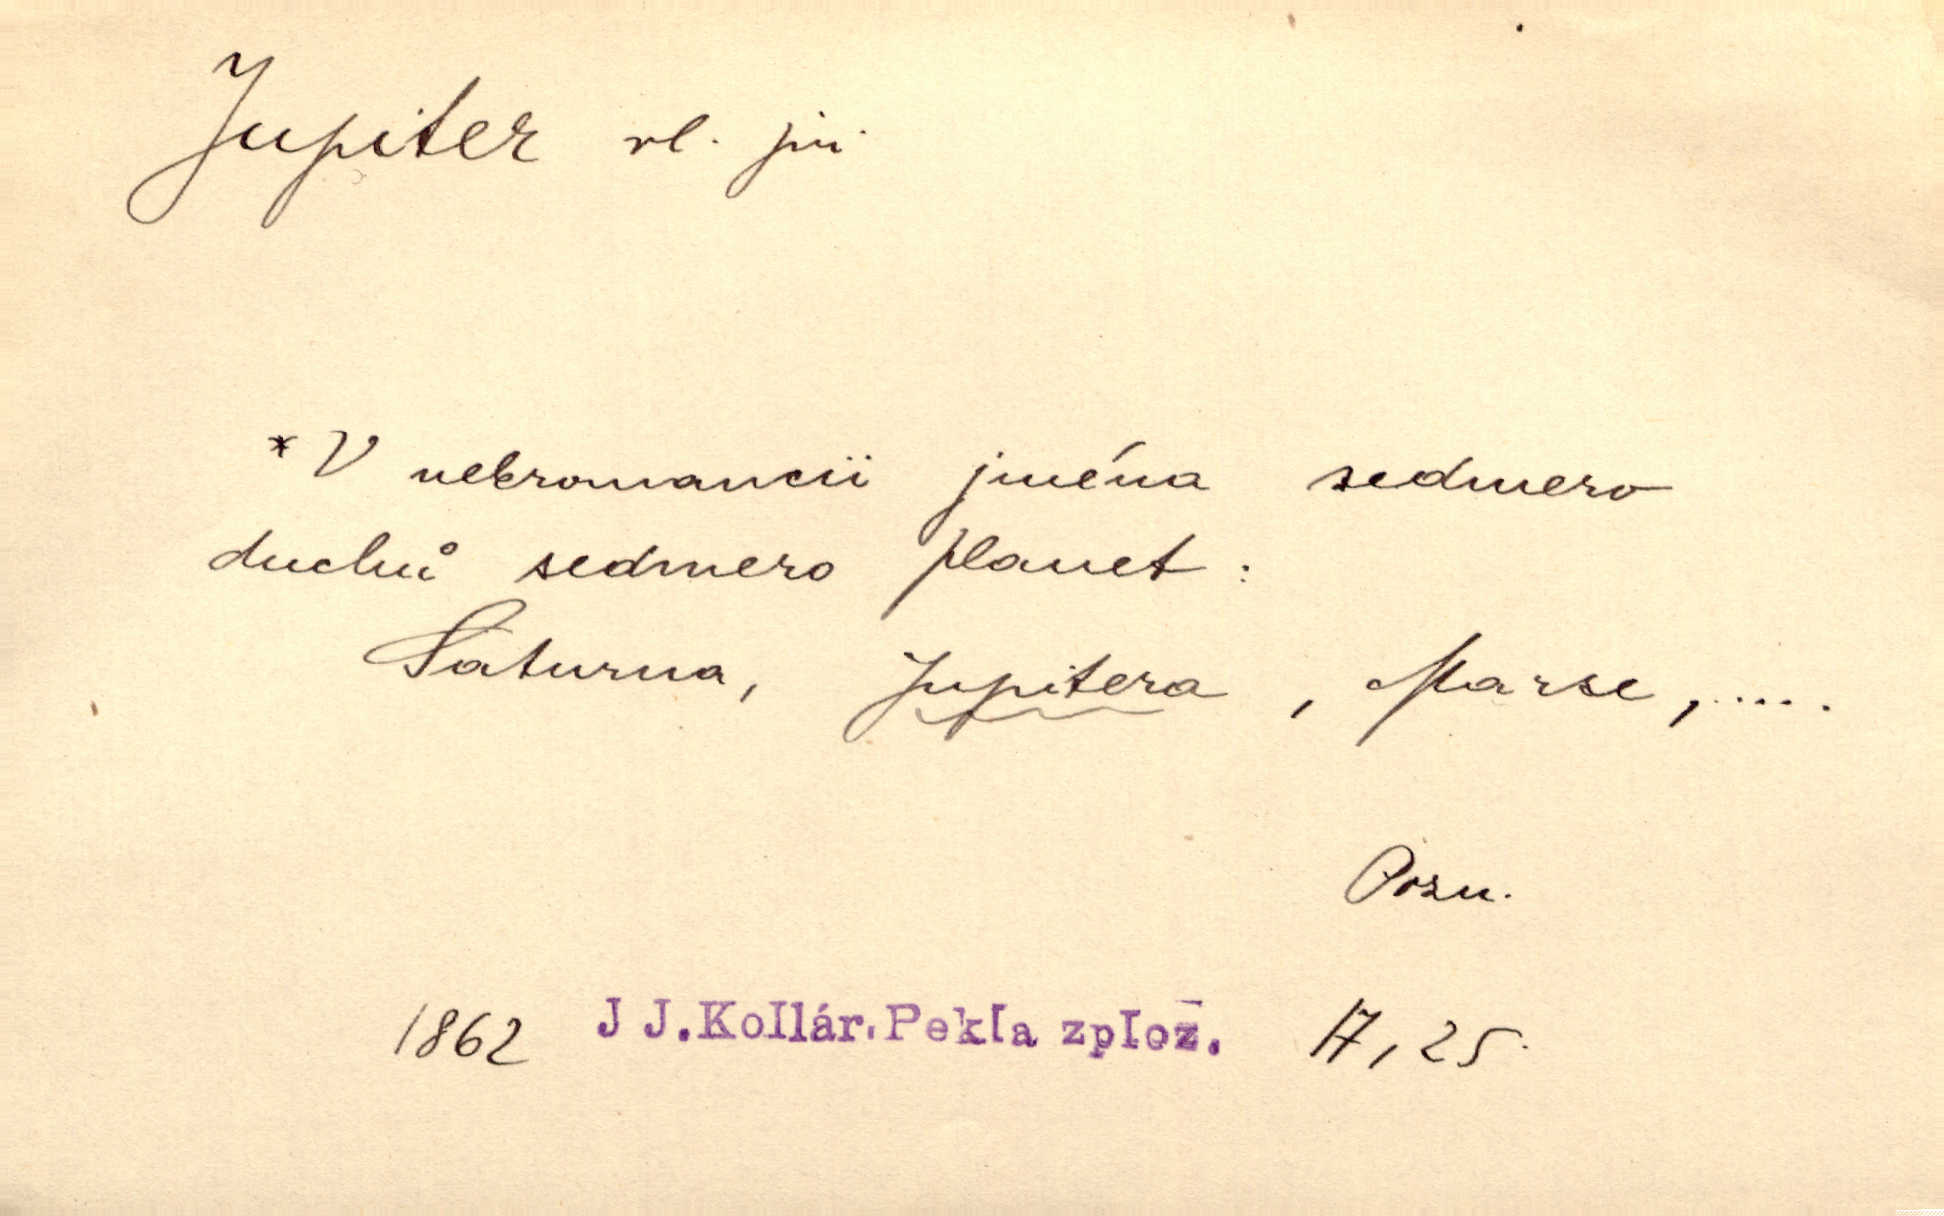 Jupiter vl. jm.
* V nekromancii jména sedmero
duchů sedmero planet :
Saturna, Jupitera, Marse, .....
Pozn.
1862 J J.Kollár.Pekla zploz. 17, 25.